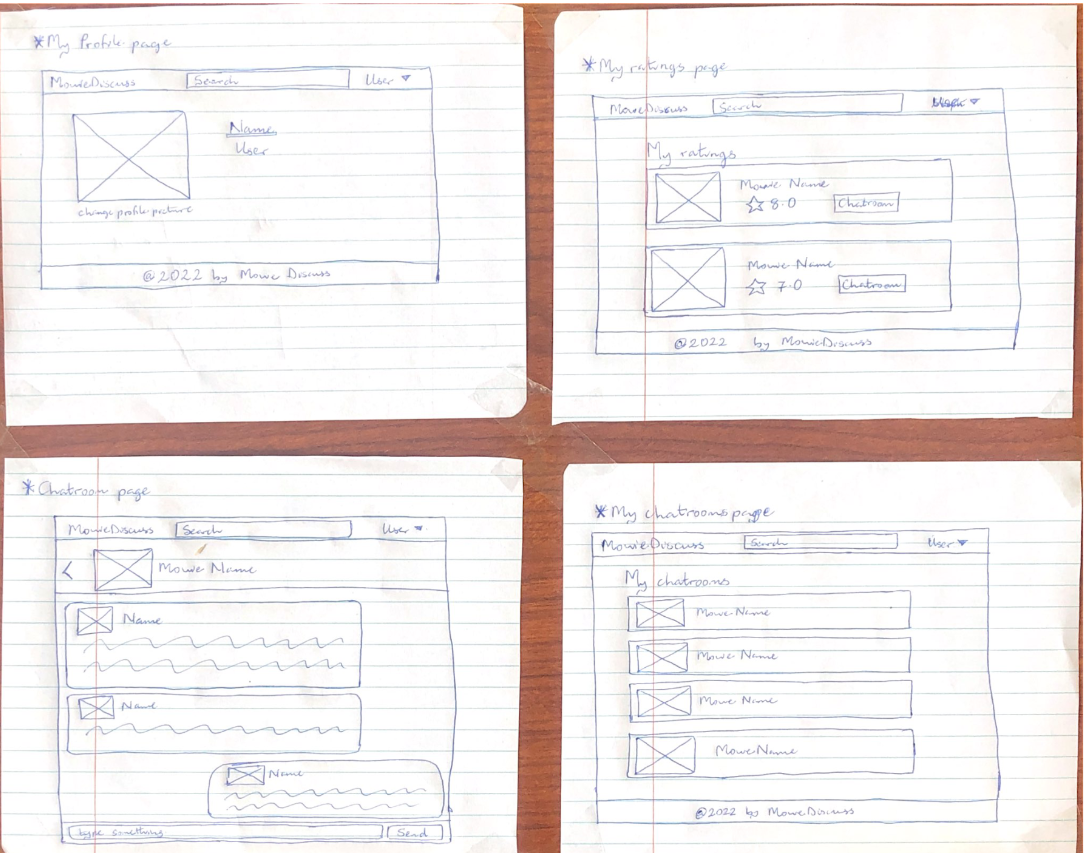 *My Profile page
MovieDiscuss Search User
Name
User
change profile picture
@2022 by Movie Discuss
*My ratings page
MovieDiscuss Search
My ratings
Movie Name
8.0 Chatroom
Movie Name
7.0 Chatroom
@2022 by MovieDiscuss
*Chatroom page
MovieDiscuss Search User
< Movie Name
Name
Name
Name
type something Send
*My chatrooms page
MovieDiscuss Search User
My chatrooms
Movie Name
Movie Name
Movie Name
Movie Name
@2022 by MovieDiscuss